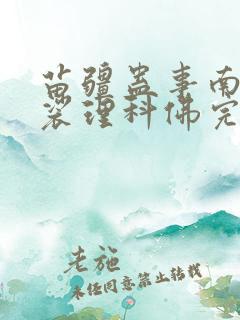 苗疆蛊事南
裟理科佛完
老施
未经同意禁止转载